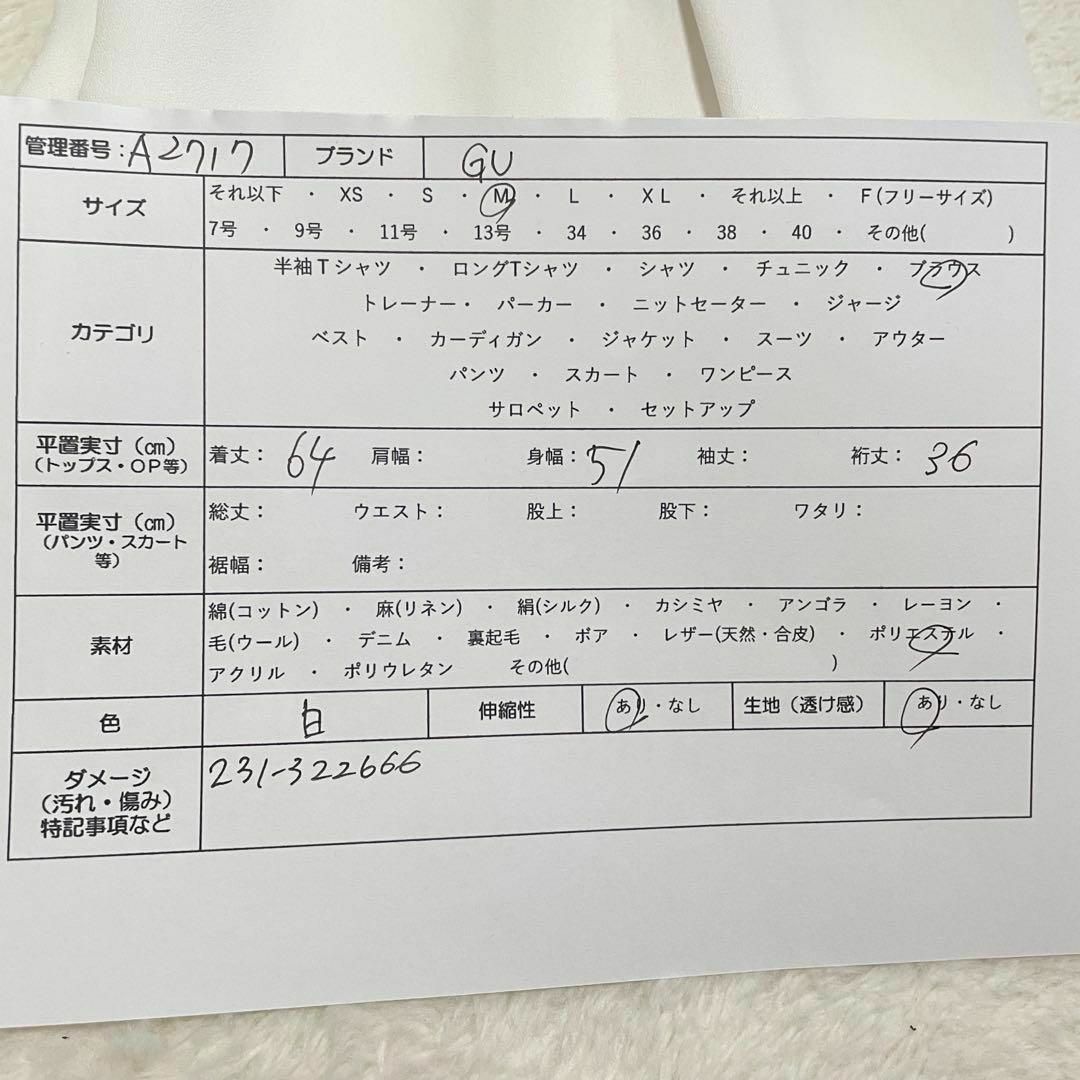 管理番号：A2717 ブランド GU
サイズ それ以下 ・ XS ・ S ・ M ・ L ・ XL ・ それ以上 ・ F(フリーサイズ)
7号 ・ 9号 ・ 11号 ・ 13号 ・ 34 ・ 36 ・ 38 ・ 40 ・ その他( )
カテゴリ 半袖Tシャツ ・ ロングTシャツ ・ シャツ ・ チュニック ・ ブラウス
トレーナー・ パーカー ・ ニットセーター ・ ジャージ
ベスト ・ カーディガン ・ ジャケット ・ スーツ ・ アウター
パンツ ・ スカート ・ ワンピース
サロペット ・ セットアップ
平置実寸（㎝） 着丈： 64 肩幅： 身幅： 51 袖丈： 裄丈： 36
（トップス・OP等）
平置実寸（㎝） 総丈： ウエスト： 股上： 股下： ワタリ：
（パンツ・スカート
等） 裾幅： 備考：
素材 綿(コットン) ・ 麻(リネン) ・ 絹(シルク) ・ カシミヤ ・ アンゴラ ・ レーヨン ・
毛(ウール) ・ デニム ・ 裏起毛 ・ ボア ・ レザー(天然・合皮) ・ ポリエステル ・
アクリル ・ ポリウレタン その他( )
色 白 伸縮性 あり・なし 生地（透け感） あり・なし
ダメージ 231-322666
（汚れ・傷み）
特記事項など